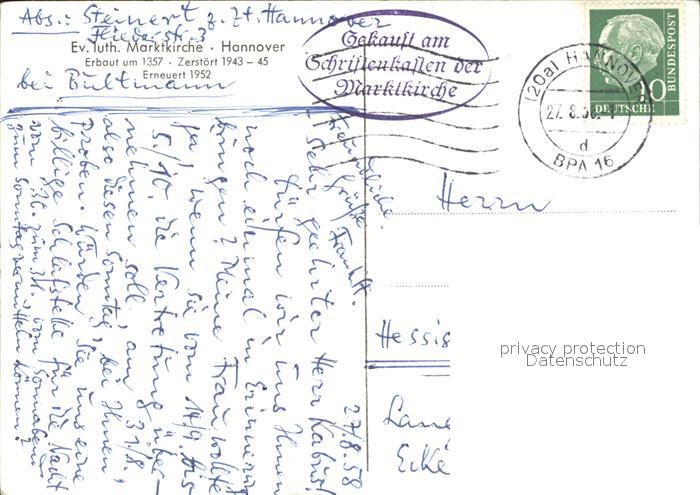 Abs.: Steinert z. Zt. Hannover
Fliederstr. 3
Ev. luth. Marktkirche · Hannover
Erbaut um 1357 · Zerstört 1943 – 45
Erneuert 1952
bei Bultmann
Gekauft am
Schriftenkasten der
Marktkirche
(20a) HANNOVER
27.8.58
d
BPA 16
DEUTSCHE
BUNDESPOST
10
27/8.58
Sehr geehrter Herr Kabus!
Dürfen wir uns Ihnen
noch einmal in Erinnerung
bringen? Meine Frau wollte
ja, wenn sie vom 14/9. bis
5/10. die Vertretung über-
nehmen soll, am 31/8.,
also diesen Sonntag, bei Ihnen
Proben. Würden Sie uns eine
billige Schlafstelle für die Nacht
vom 30. zum 31., vom Sonnabend
zum Sonntag vermitteln können?
Freundliche
Grüße
Herrn
Hessis
privacy protection
Datenschutz